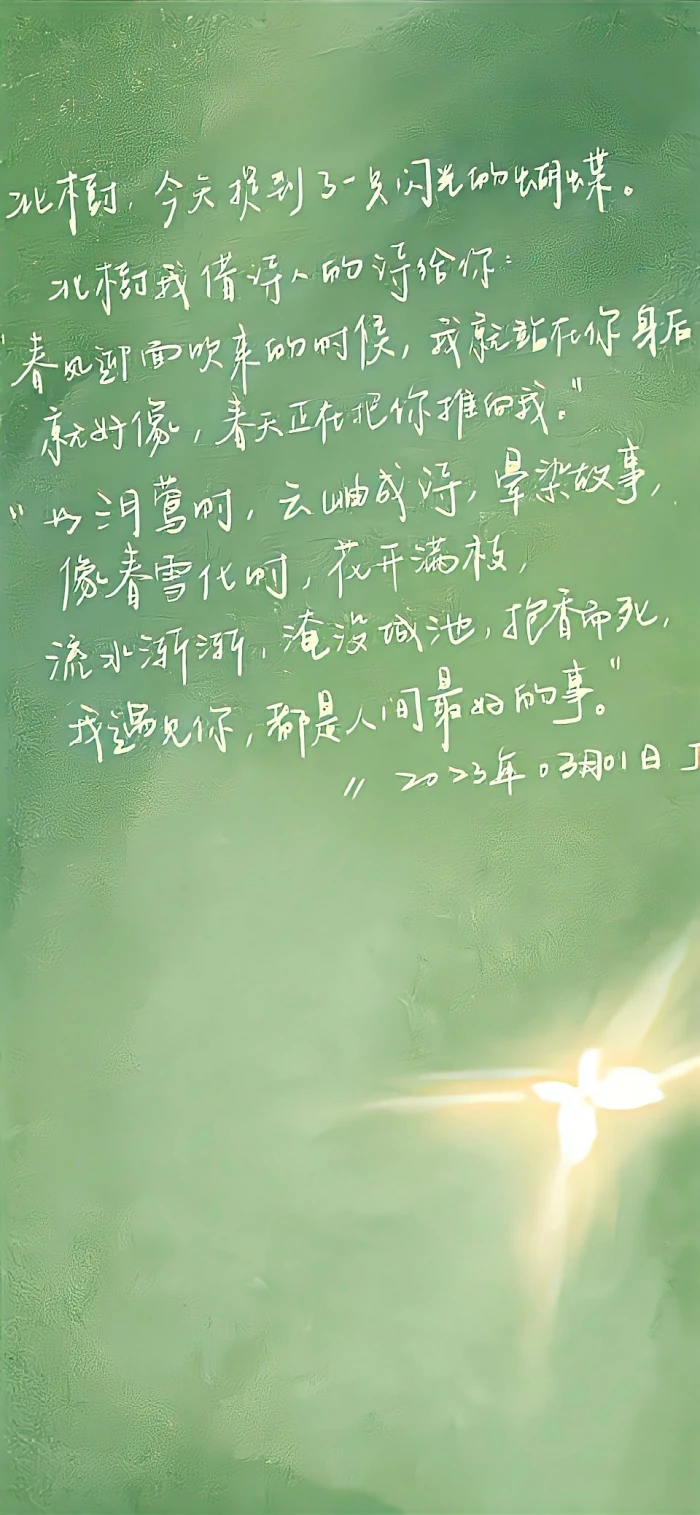 北樹，今天捉到了一只闪光的蝴蝶。
北樹我借诗人的诗给你：
"春风迎面吹来的时候，我就站在你身后
就好像，春天正在把你推向我。"
"如月莺时，云岫成诗，晕染故事，
像春雪化时，花开满枝，
流水渐渐，淹没城池，抱香而死，
我遇见你，都是人间最好的事。"
〃 2023年03月01日